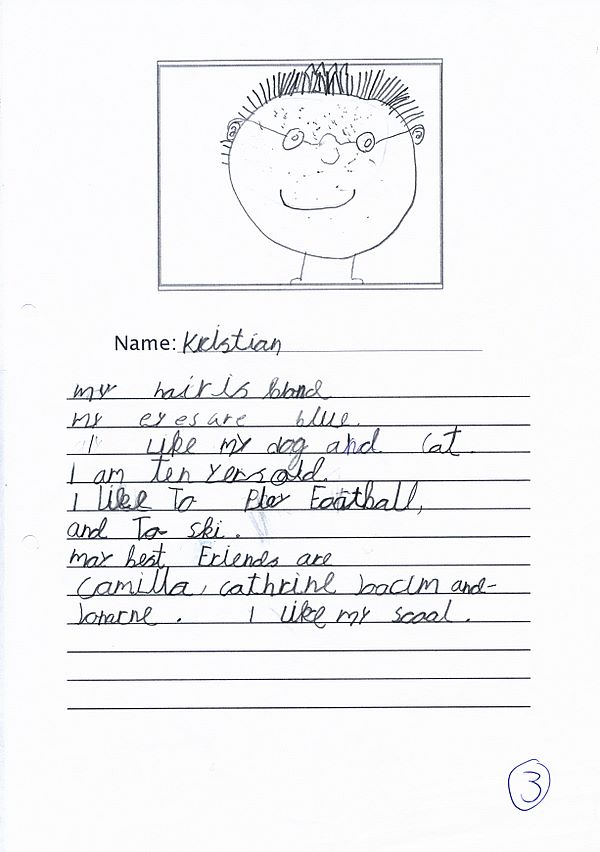 Name: Kristian
my hair is blond
my eyes are blue.
I like my dog and cat.
I am ten yers old.
I like To Play Football,
and To ski.
may best Friends are
Camilla, cathrine and-
I like my scool.
3